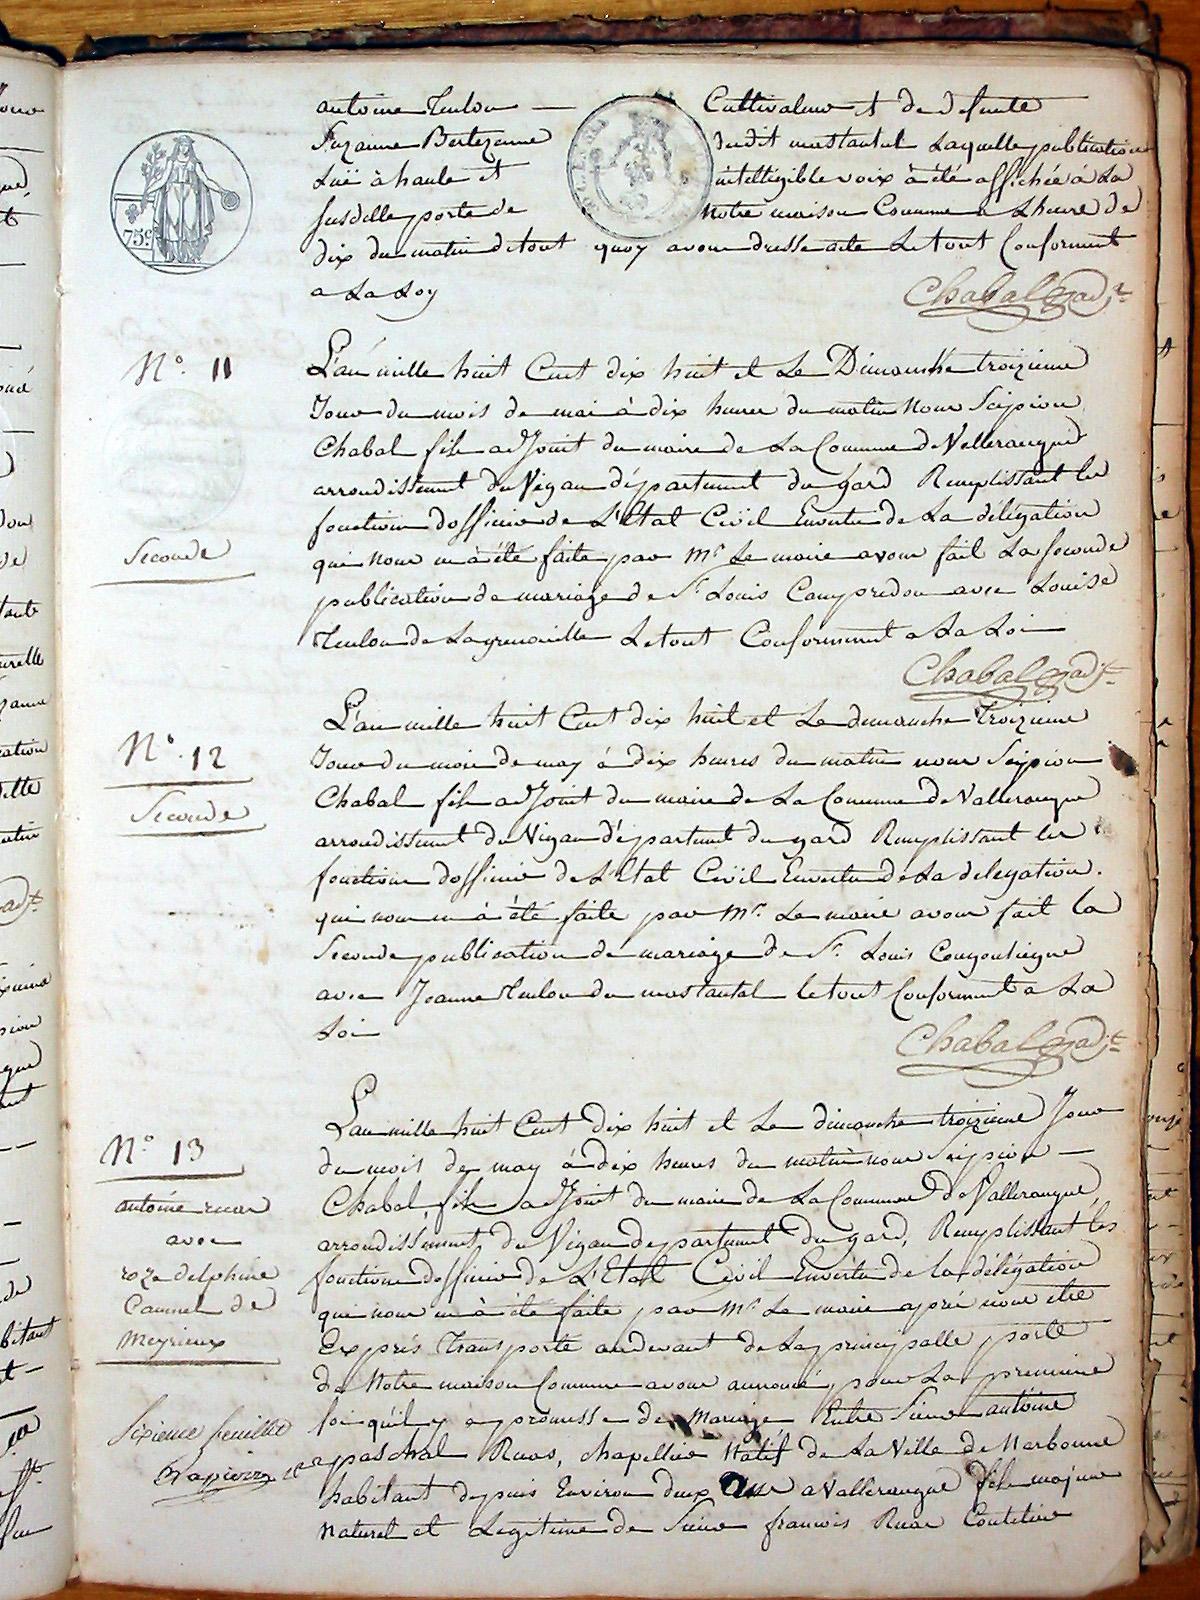 antoine Teulon — Cultivateur et de defunte
Suzanne Bertezenne dudit mastantal Laquelle publication
Luë à haute et intelligible voix à été affichée à La
susdite porte de Notre maison Commune a Lheure de
dix du matin de tout quoy avons dressé acte Le tout Conforment
a La Loy
Chabal adjt
75c
N° 11
L'an mille huit Cent dix huit et Le Dimanche troizieme
Jour du mois de mai à dix heures du matin Nous Scipion
Chabal fils adjoint du maire de La Commune de Valleraugue
arrondissement du Vigan département du gard Remplissant les
fonctions dofficier de L'Etat Civil Envertu de La délégation
qui nous en à été faite par Mr Le maire avons fait La seconde
publication de mariage de Sr Louis Campredon avec Louise
Teulon de Lagrenouille Le tout Conformement a La Loi
Seconde
Chabal adjt
N° 12
Seconde
L'an mille huit Cent dix huit et Le dimanche Troizieme
Jour du mois de may à dix heures du matin nous Scipion
Chabal fils adjoint du maire de La Commune de Valleraugue
arrondissement du Vigan département du gard Remplissant les
fonctions dofficier de L'Etat Civil Envertu de La delegation.
qui nous en à été faite par Mr. Le maire avons fait la
Seconde publication de mariage de Sr. Louis
avec Jeanne Teulon du mastantal le tout Conformement a La
Loi
Chabal adjt
N° 13
antoine ruas
avec
roze delphine
Caumel de
Meyrieux
Lan mille huit Cent Dix huit et Le dimanche troizieme Jour
du mois de may à dix heures du matin nous Scipion —
Chabal, fils adjoint du maire de La Commune de Valleraugue,
arrondissement du Vigan departement du gard, Remplissant les
fonctions dofficier de L'Etat Civil Envertu de la délégation
qui nous en à été faite par Mr Le maire après nous être
Exprès Transporté audevant de La principalle porte
de Notre maison Commune avons annoncé, pour La premiere
foi qu'il y a promesse de Mariage Entre Sieur antoine
paschal Ruas, chapellier Natif de La Ville de Narbonne
habitant depuis Environ deux Ans a Valleraugue fils majeur
Naturel et Legitime de Sieur francois Ruas Coutelier
Sixieme feuillet